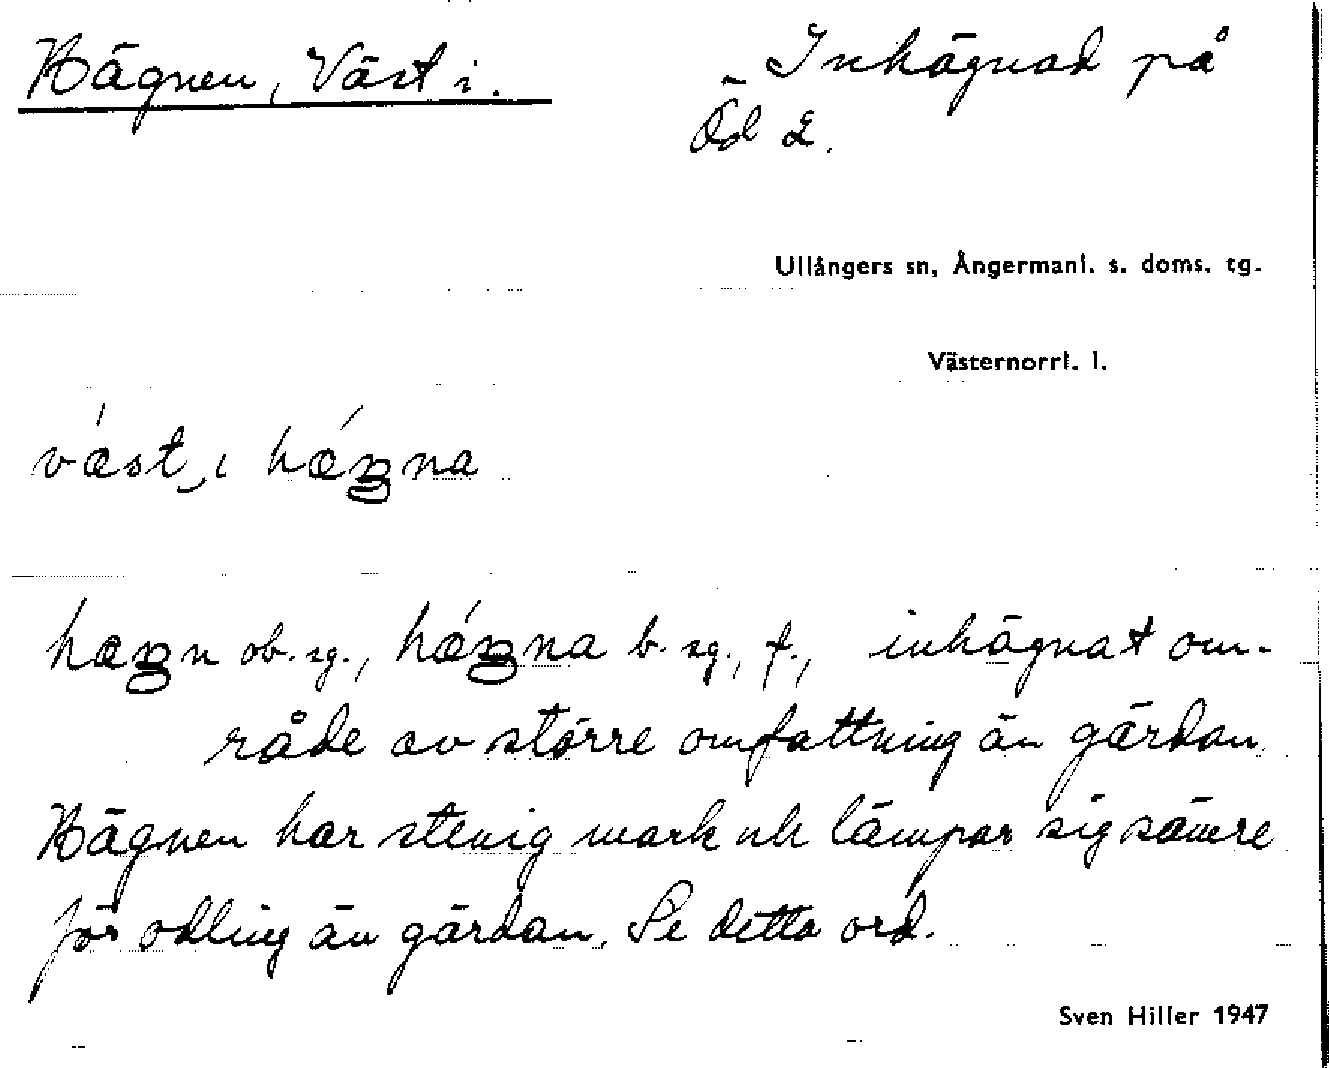 Hägnen, Väst i.
Inhägnad på
Öd 2.
Ullångers sn, Ångermanl. s. doms. tg.
Västernorrl. l.
væst‿ı hæŋna
hæŋn ob. sg., hæŋna b. sg., f., inhägnat om-
råde av större omfattning än gärdan.
Hägnen har stenig mark och lämpar sig sämre
för odling än gärdan. Se detta ord.
Sven Hiller 1947